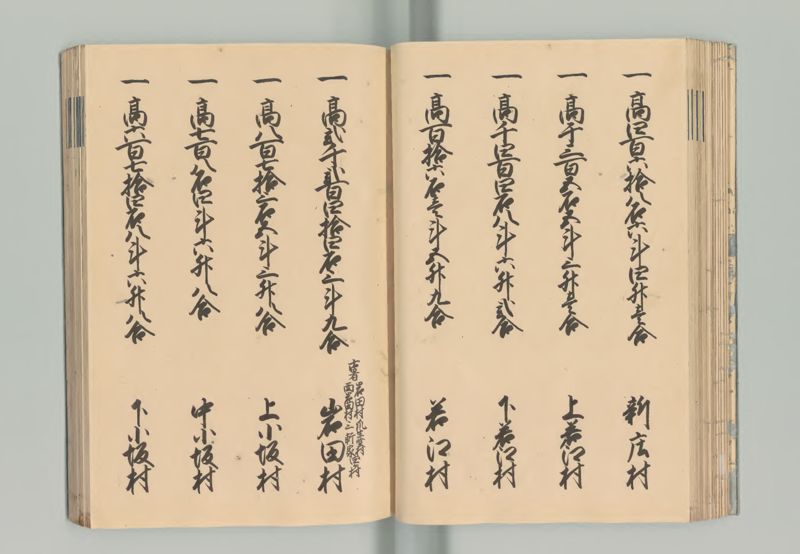 一 高四百六拾八石六斗四升壱合 新庄村
一 高千三百五石五斗三升壱合 上若江村
一 高千四百四石八斗六升弐合 下若江村
一 高百拾六石壱斗五升九合 若江村
古者岩田村瓜生堂村
西岩田村
一 高弐千弐百四拾四石三斗九合 岩田村
一 高八百七拾三石五斗三升八合 上小坂村
一 高七百八石四斗六升八合 中小坂村
一 高六百七拾四石八斗六升八合 下小坂村